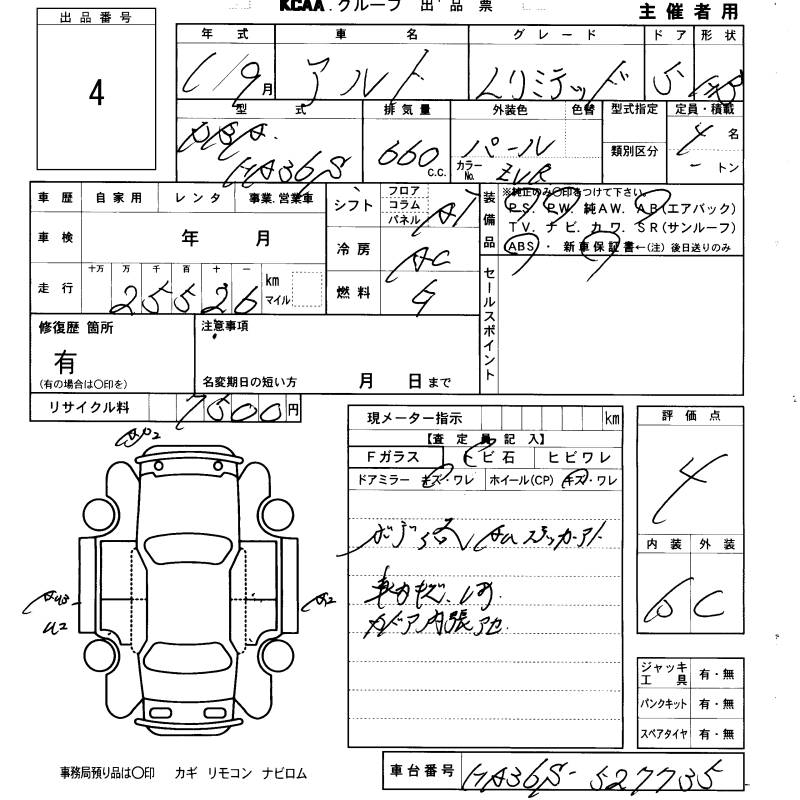 KCAA.グループ 出品票
主催者用
出品番号
4
年式 車名 グレード ドア 形状
1/9月 アルト Lリミテッド 5 HB
型式 排気量 外装色 色替 型式指定 定員・積載
類別区分
DBA-HA36S 660c.c. パール 4名
カラーNo. ZVR -トン
車歴 自家用 レンタ 事業.営業車
シフト フロア コラム パネル AT
車検 年 月
冷房 AC
走行 十万 万 千 百 十 一 km マイル
25526
燃料 G
装備品 ※純正のみ〇印をつけて下さい。
P.S. P.W. 純AW. A.B(エアバック)
T.V. ナビ. カワ. S.R(サンルーフ)
ABS・新車保証書←(注)後日送りのみ
セールスポイント
修復歴 箇所
有
(有の場合は〇印を)
注意事項
名変期日の短い方 月 日まで
リサイクル料 7500円
現メーター指示 km
【査定員記入】
Fガラス トビ石 ヒビワレ
ドアミラー キズ・ワレ ホイール(CP) キズ・ワレ
車内キズ、シミ
ドア内張アセ
評価点
4
内装 外装
C
A2
U2
ジャッキ工具 有・無
パンクキット 有・無
スペアタイヤ 有・無
事務局預り品は〇印 カギ リモコン ナビロム
車台番号 HA36S-527735